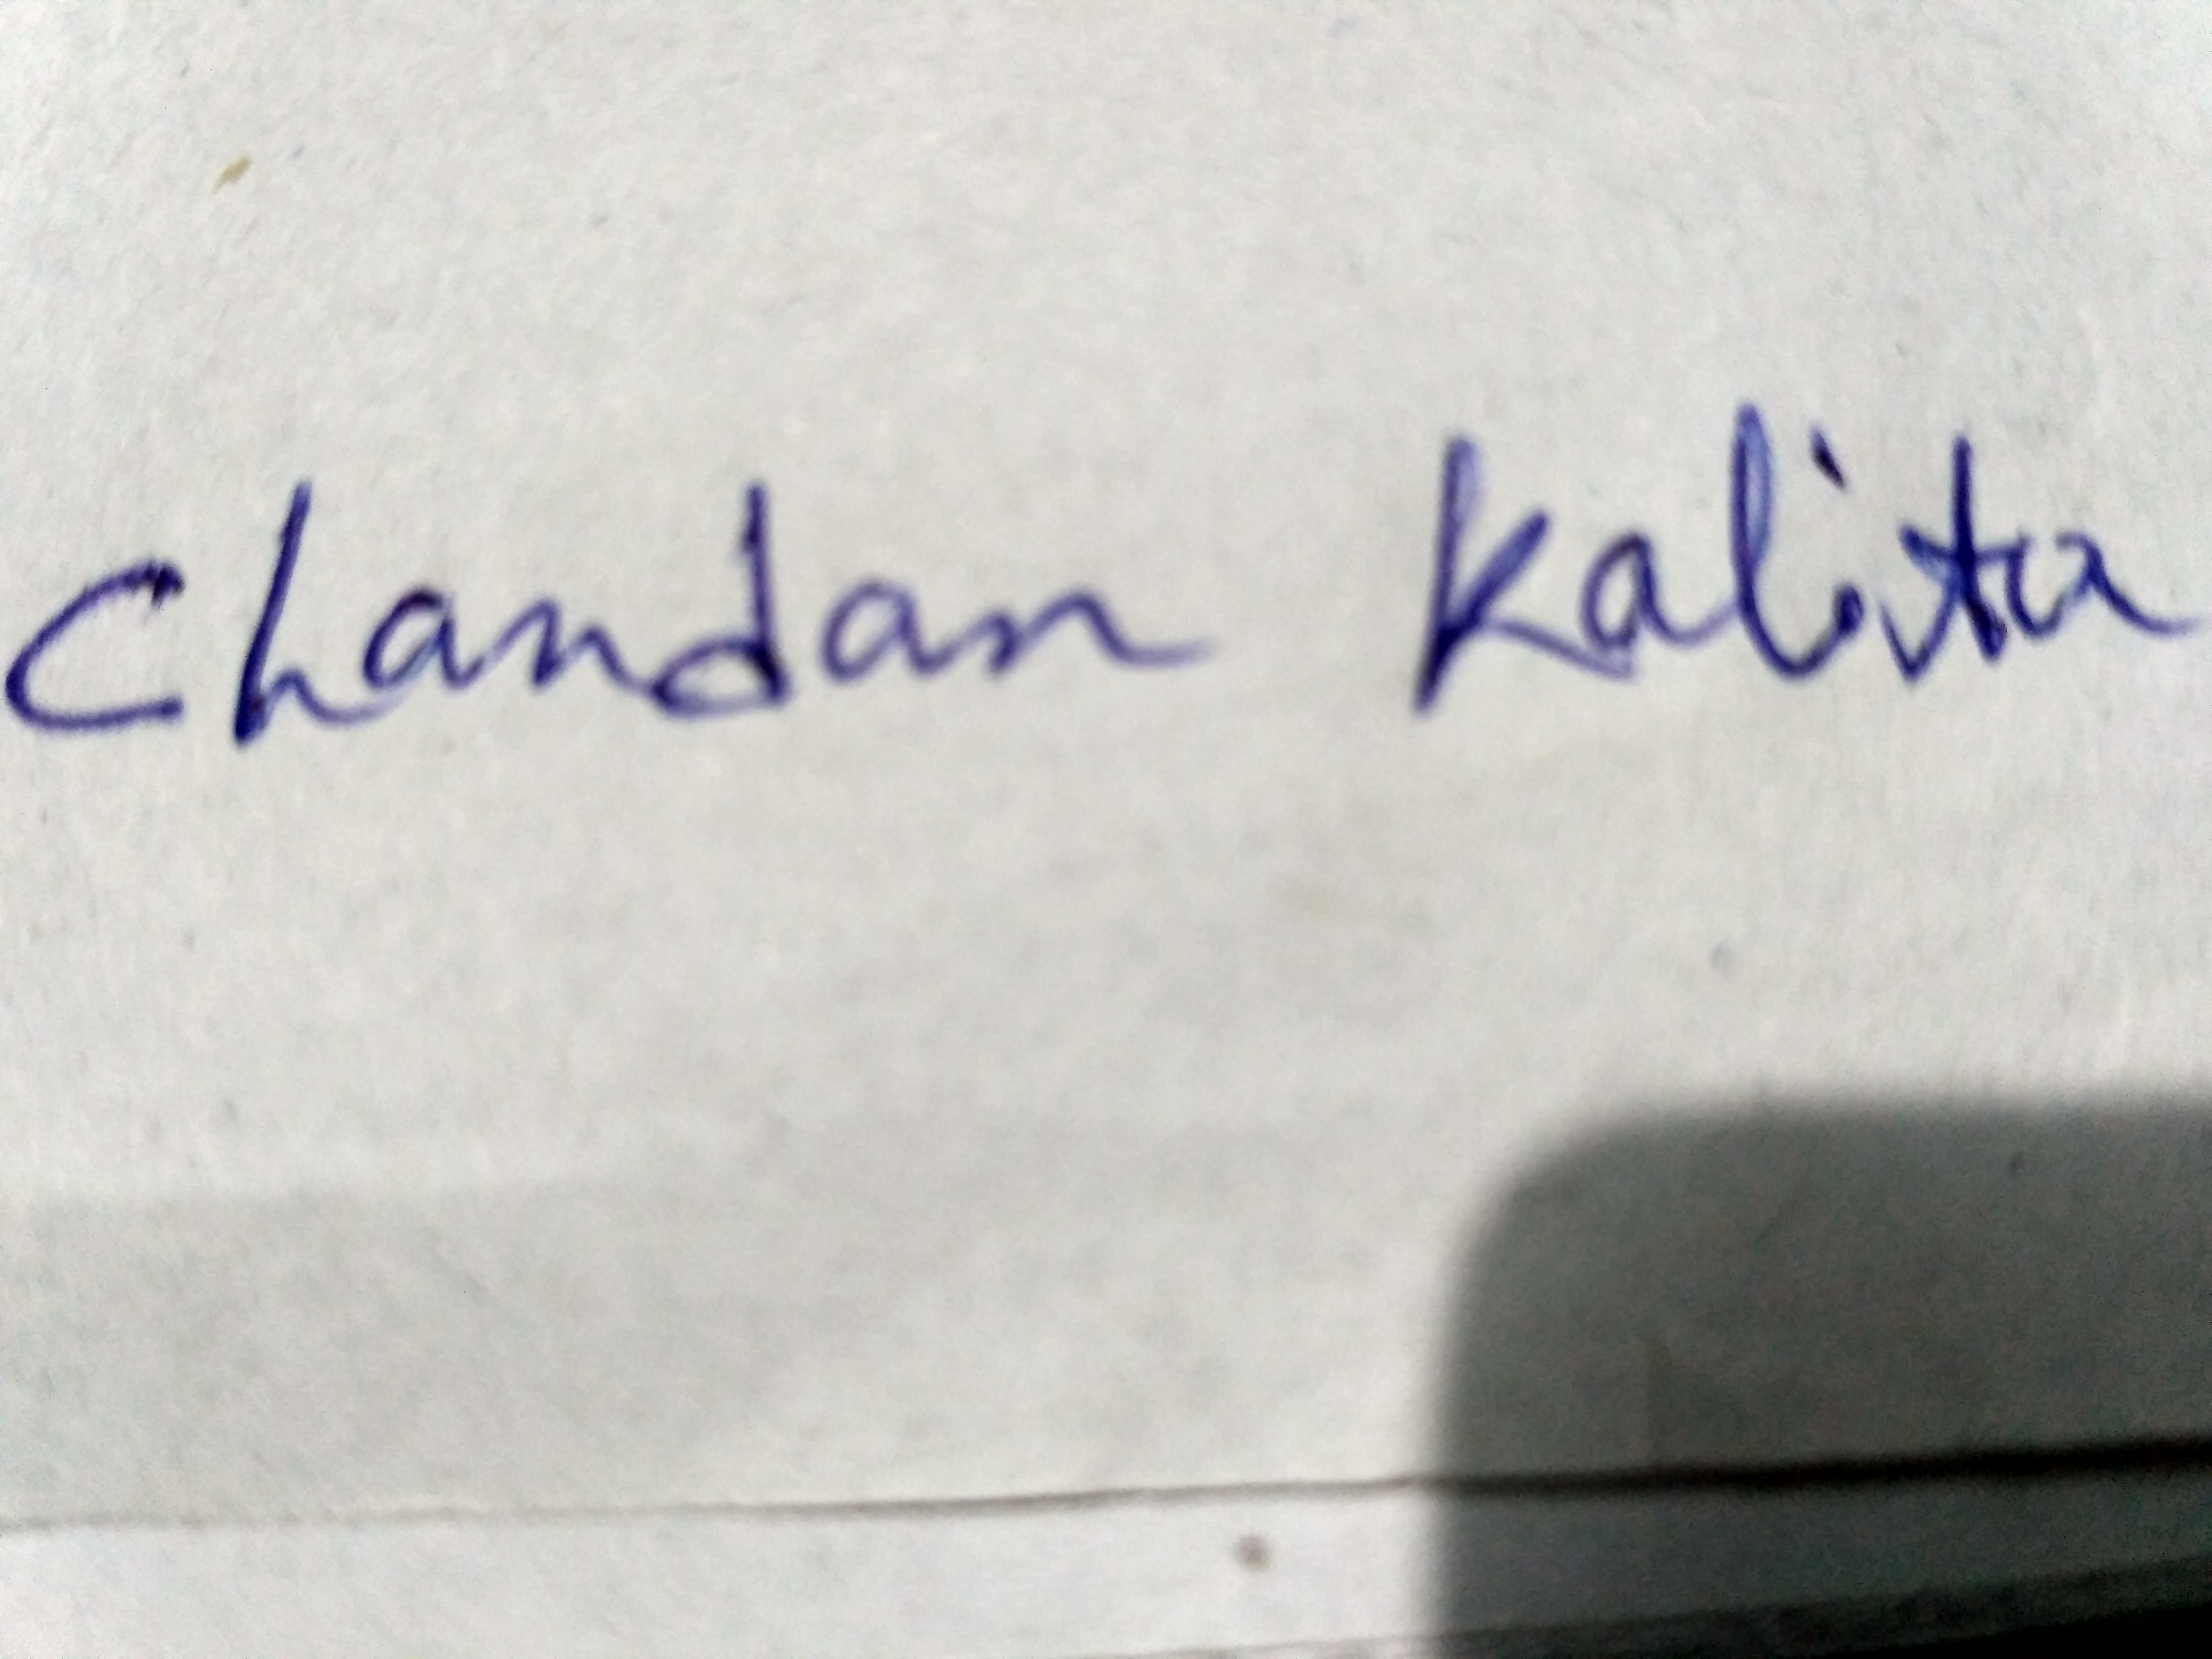 Chandan Kalita